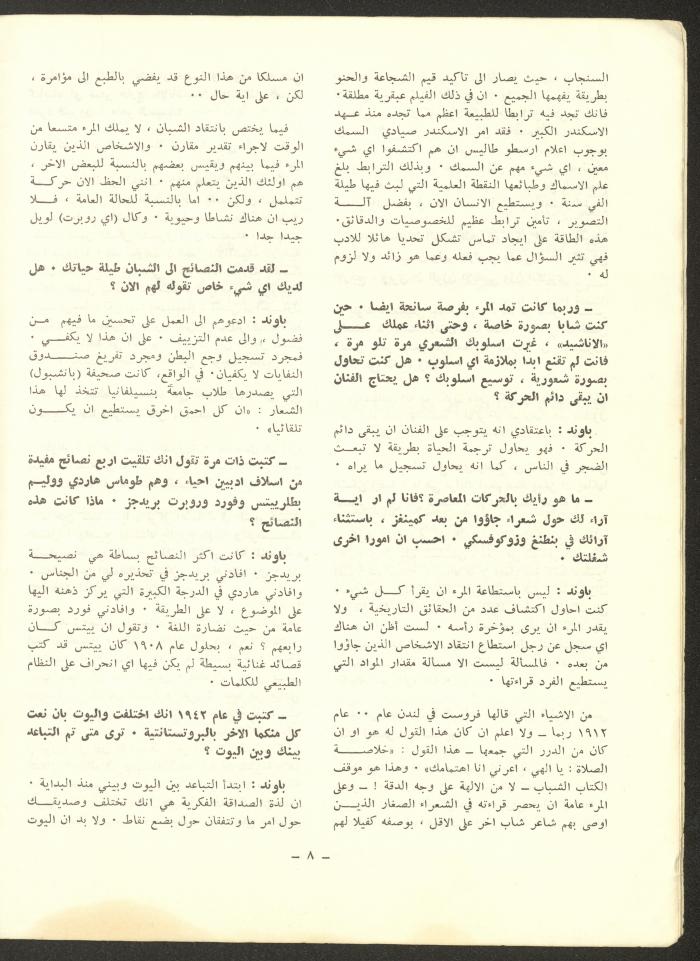 السنجاب ، حيث يصار الى تأكيد قيم الشجاعة والحنو
بطريقة يفهمها الجميع ٠ ان في ذلك الفيلم عبقرية مطلقة٠
فانك تجد فيه ترابطا للطبيعة اعظم مما تجده منذ عهد
الاسكندر الكبير ٠ فقد امر الاسكندر صيادي السمك
بوجوب اعلام ارسطو طاليس ان هم اكتشفوا اي شيء
معين ، اي شيء مهم عن السمك ٠ وبذلك الترابط بلغ
علم الاسماك وطبائعها النقطة العلمية التي لبث فيها طيلة
الفي سنة ٠ ويستطيع الانسان الان ، بفضل آلـــة
التصوير ، تأمين ترابط عظيم للخصوصيات والدقائق٠
هذه الطاقة على ايجاد تماس تشكل تحديا هائلا للادب
فهي تثير السؤال عما يجب فعله وعما هو زائد ولا لزوم
له ٠
ــ وربما كانت تمد المرء بفرصة سانحة ايضا ٠ حين
كنت شابا بصورة خاصة ، وحتى اثناء عملك عـــلى
«الاناشيد» ، غيرت اسلوبك الشعري مرة تلو مرة ،
فانت لم تقنع ابدا بملازمة اي اسلوب ٠ هل كنت تحاول
بصورة شعورية ، توسيع اسلوبك ؟ هل يحتاج الفنان
ان يبقى دائم الحركة ؟
باوند : باعتقادي انه يتوجب على الفنان ان يبقى دائم
الحركة ٠ فهو يحاول ترجمة الحياة بطريقة لا تبعـــث
الضجر في الناس ، كما انه يحاول تسجيل ما يراه ٠
ــ ما هو رأيك بالحركات المعاصرة ؟فانا لم ار ايــة
آراء لك حول شعراء جاؤوا من بعد كمينغز ، باستثناء
آرائك في بنطنغ وزوكوفسكي ٠ احسب ان امورا اخرى
شغلتك ٠
باوند : ليس باستطاعة المرء ان يقرأ كـــل شيء ٠
كنت احاول اكتشاف عدد من الحقائق التاريخية ، ولا
يقدر المرء ان يرى بمؤخرة رأسه ٠ لست أظن ان هناك
اي سجل عن رجل استطاع انتقاد الاشخاص الذين جاؤوا
من بعده ٠ فالمسألة ليست الا مسالة مقدار المواد التي
يستطيع الفرد قراءتها ٠
من الاشياء التي قالها فروست في لندن عام ٠٠ عام
١٩١٢ ربما ــ ولا اعلم ان كان هذا القول له هو او ان
كان من الدرر التي جمعها ــ هذا القول : «خلاصـــة
الصلاة : يا الهي ، اعرني انا اهتمامك» ٠ وهذا هو موقف
الكتاب الشباب ــ لا من الالهة على وجه الدقة ! ــ وعلى
المرء عامة ان يحصر قراءته في الشعراء الصغار الذيـــن
اوصى بهم شاعر شاب اخر على الاقل ، بوصفه كفيلا لهم
ان مسلكا من هذا النوع قد يفضي بالطبع الى مؤامرة ،
لكن ، على اية حال ٠٠
فيما يختص بانتقاد الشبان ، لا يملك المرء متسعا من
الوقت لاجراء تقدير مقارن ٠ والاشخاص الذين يقارن
المرء فيما بينهم ويقيس بعضهم بالنسبة للبعض الاخر ،
هم اولئك الذين يتعلم منهم ٠ انني الحظ الان حركـــة
تتململ ، ولكن ٠٠ اما بالنسبة للحالة العامة ، فـــلا
ريب ان هناك نشاطا وحيوية ٠ وكال (اي روبرت) لويل
جيدا جدا ٠
ــ لقد قدمت النصائح الى الشبان طيلة حياتك ٠ هل
لديك اي شيء خاص تقوله لهم الان ؟
باوند : ادعوهم الى العمل على تحسين ما فيهم مـــن
فضول ، والى عدم التزييف ٠ على ان هذا لا يكفـــي ٠
فمجرد تسجيل وجع البطن ومجرد تفريغ صنـــدوق
النفايات لا يكفيان٠ في الواقع، كانت صحيفة (بانشبول)
التي يصدرها طلاب جامعة بنسيلفانيا تتخذ لها هذا
الشعار : «ان كل احمق اخرق يستطيع ان يكـــون
تلقائيا» ٠
ــ كتبت ذات مرة تقول انك تلقيت اربع نصائح مفيدة
من اسلاف ادبيين احياء ، وهم طوماس هاردي ووليـم
بطلرييتس وفورد وروبرت بريدجز ٠ ماذا كانت هذه
النصائح ؟
باوند : كانت اكثر النصائح بساطة هي نصيحـــة
بريدجز ٠ افادني بريدجز في تحذيره لي من الجناس ٠
وافادني هاردي في الدرجة الكبيرة التي يركز ذهنه اليها
على الموضوع ، لا على الطريقة ٠ وافادني فورد بصورة
عامة من حيث نضارة اللغة ٠ وتقول ان ييتس كـــان
رابعهم ؟ نعم ، بحلول عام ١٩٠٨ كان ييتس قد كتب
قصائد غنائية بسيطة لم يكن فيها اي انحراف على النظام
الطبيعي للكلمات ٠
ــ كتبت في عام ١٩٤٢ انك اختلفت واليوت بان نعت
كل منكما الاخر بالبروتستانتية ٠ ترى متى تم التباعد
بينك وبين اليوت ؟
باوند : ابتدأ التباعد بين اليوت وبيني منذ البداية ٠
ان لذة الصداقة الفكرية هي انك تختلف وصديقـــك
حول امر ما وتتفقان حول بضع نقاط ٠ ولا بد ان اليوت
ــ ٨ ــ